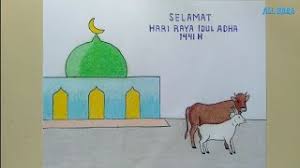 SELAMAT
HARI RAYA IDUL ADHA
1441 H